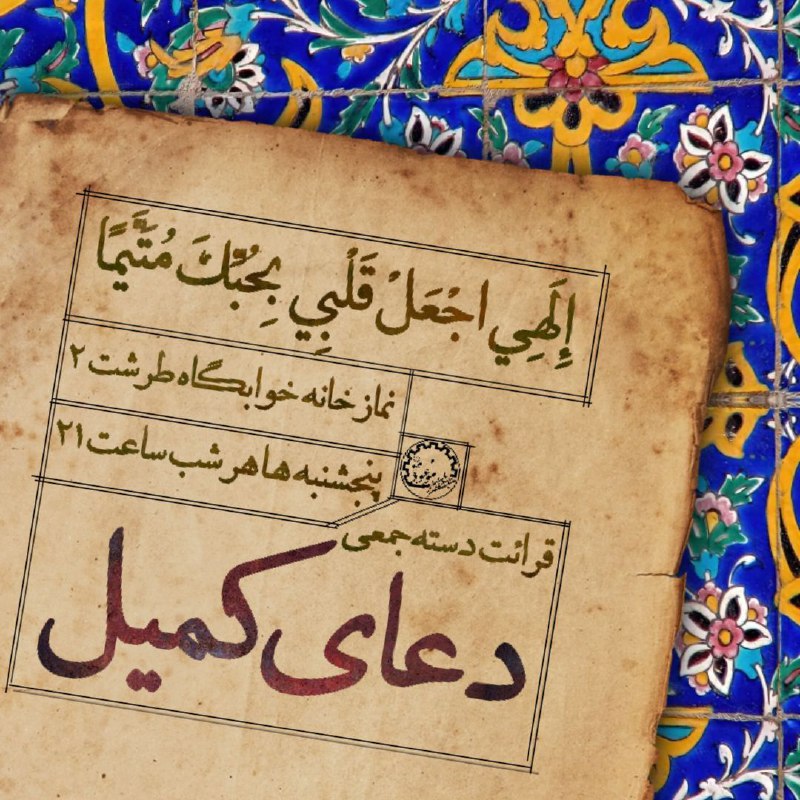 إِلَهِي اجْعَلْ قَلْبِي بِحُبِّكَ مُتَيَّمًا
نمازخانه خوابگاه طرشت ۲
پنجشنبه ها هر شب ساعت ۲۱
قرائت دسته جمعی
دعای کمیل